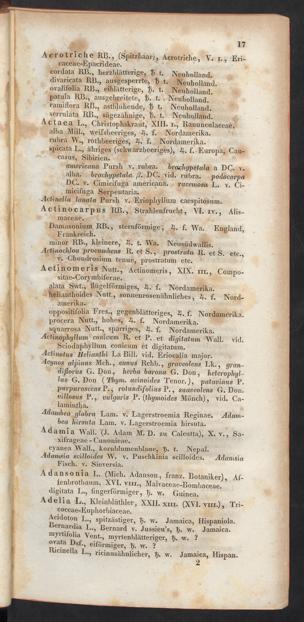 17
Acrotriche RB., (Spitzhaar), Acrotriche, V. I., Eri-
caceae-Epacrideae.
cordata RB., herzblätterige, ♄. t. Neuholland.
divaricata RB., ausgesperrte, ♄. t. Neuholland.
ovalifolia RB., eiblätterige, ♄. t. Neuholland.
patula RB., ausgebreitete, ♄. t. Neuholland.
ramiflora RB., astblühende, ♄. t. Neuholland.
serrulata RB., sägezähnige, ♄. t. Neuholland.
Actaea L., Christophskraut, XIII. I., Ranunculaceae.
alba Mill., weifsbeeriges, ♃. f. Nordamerika.
rubra W., rothbeeriges, ♃. f. Nordamerika.
spicata L., ähriges (schwarzbeeriges), ♃. f. Europa, Cau-
casus, Sibirien.
americana Pursh v. rubra. brachypetala α DC. v.
alba. brachypetala β. DC. vid. rubra. podocarpa
DC. v. Cimicifuga americana. racemosa L. v. Ci-
micifuga Serpentaria.
Actinella lanata Pursh v. Eriophyllum caespitosum.
Actinocarpus RB., Strahlenfrucht, VI. IV., Alis-
maceae.
Damasonium RB., sternförmige, ♃. f. Wa. England,
Frankreich.
minor RB., kleinere, ♃. t. Wa. Neusüdwallis.
Actinochloa procumbens R. et S., prostrata R. et S. etc.,
v. Chondrosium tenue, prostratum etc.
Actinomeris Nutt., Actinomeris, XIX. III., Compo-
sitae-Corymbiferae.
alata Swt., flügelförmiges, ♃. f. Nordamerika.
helianthoides Nutt., sonnenrosenähnliches, ♃. f. Nord-
amerika.
oppositifolia Fres., gegenblätteriges, ♃. f. Nordamerika.
procera Nutt., hohes, ♃. f. Nordamerika.
squarrosa Nutt., sparriges, ♃. f. Nordamerika.
Actinophyllum conicum R. et P. et digitatum Wall. vid.
Sciodaphyllum conicum et digitatum.
Actinotus Helianthi La Bill. vid. Eriocalia major.
Acynos alpinus Mch., annus Rchb., graveolens Lk., gran-
diflorus G. Don, herba barona G. Don, heterophyl-
lus G. Don (Thym. acinoides Tenor.), patavinus P.
purpurascens P., rotundifolius P., suaveolens G. Don.
villosus P., vulgaris P. (thymoides Mönch), vid. Ca-
lamintha.
Adambea glabra Lam. v. Lagerstroemia Reginae. Adam-
bea hirsuta Lam. v. Lagerstroemia hirsuta.
Adamia Wall. (J. Adam M. D. zu Calcutta), X. V., Sa-
xifrageae-Cunonieae.
cyanea Wall., kornblumenblaue, ♄. t. Nepal.
Adamsia scilloides W. v. Puschkinia scilloides. Adamsia
Fisch. v. Sieversia.
Adansonia L. (Mich. Adanson, franz. Botaniker), Af-
fenbrothbaum, XVI. VIII., Malvaceae-Bombaceae.
digitata L., fingerförmiger, ♄. w. Guinea.
Adelia L., Kleinblüthler, XXII. XIII. (XVI. VIII.), Tri-
coccae-Euphorbiaceae.
Acidoton L., spitzästiger, ♄. w. Jamaica, Hispaniola.
Bernardia L., Bernard v. Jussieu's, ♄. w. Jamaica.
myrtifolia Vent., myrtenblätteriger, ♄. w. ?
ovata Dsf., eiförmiger, ♄. w. ?
Ricinella L., ricinusähnlicher, ♄. w. Jamaica, Hispan.
2